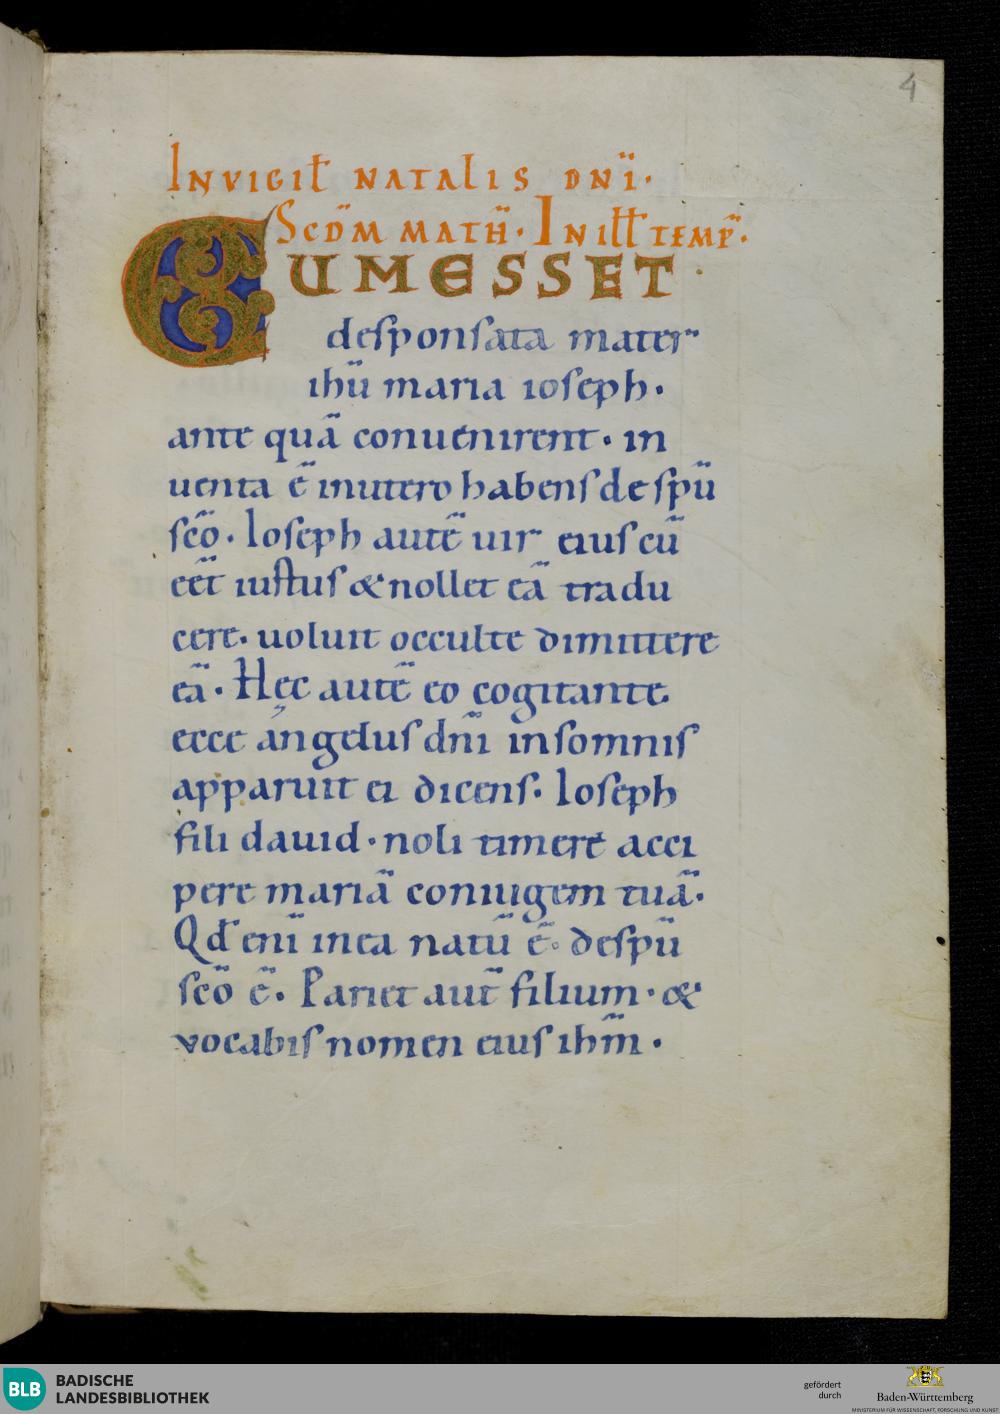 4
INVIGIL̄ NATALIS DN̄I·
SCDM̄ MATH̄· IN ILL̄ TEMP̄·
CUMESSET
desponsata mater
ihū maria ioseph·
ante quā conuenirent· in
uenta ē inutero habens de spū
scō. Ioseph autē uir eius cū
eēt iustus & nollet eā tradu
cere. uoluit occulte dimittere
eā. Hęc autē eo cogitante
ecce angelus dn̄i insomnis
apparuit ei dicens. Ioseph
fili dauid· noli timere acci
pere mariā coniugem tuā.
Qd̄ enī inea natū ē. despū
scō ē. Pariet aut̄ filium· &
vocabis nomen eius ihm̄.
BLB
BADISCHE
LANDESBIBLIOTHEK
gefördert
durch
Baden-Württemberg
MINISTERIUM FÜR WISSENSCHAFT, FORSCHUNG UND KUNST